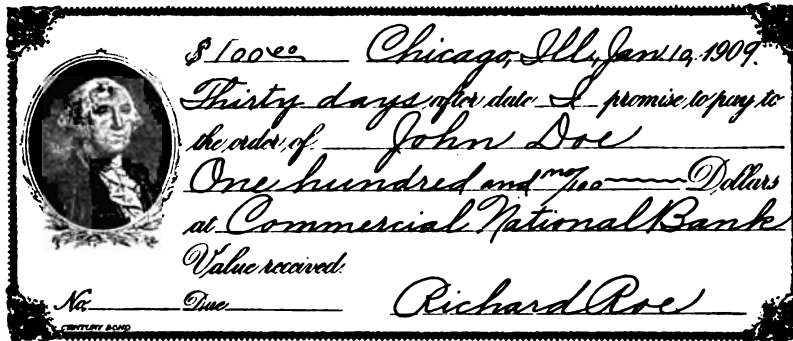 $100 00 Chicago, Ill., Jan 10, 1909.
Thirty days after date I promise to pay to
the order of John Doe
One hundred and no/100 Dollars
at Commercial National Bank
Value received.
No. Due Richard Roe
CENTURY BOND